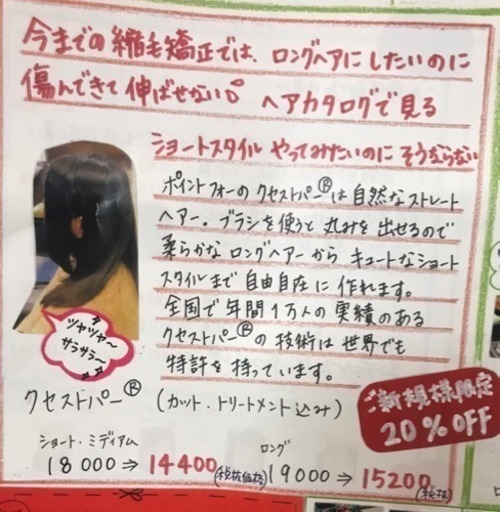 今までの縮毛矯正では、ロングヘアにしたいのに
傷んできて伸ばせない。ヘアカタログで見る
ショートスタイルやってみたいのにそうならない
ポイントフォーのクセストパー®は自然なストレート
ヘアー。ブラシを使うと丸みを出せるので
柔らかなロングヘアーからキュートなショート
スタイルまで自由自在に作れます。
全国で年間1万人の実績のある
クセストパー®の技術は世界でも
特許を持っています。
ツヤツヤ〜
サラサラ〜
クセストパー®(カット・トリートメント込み)
ご新規様限定
20%OFF
ショート・ミディアム
18000⇒14400(税抜価格)
ロング
19000⇒15200(税抜)